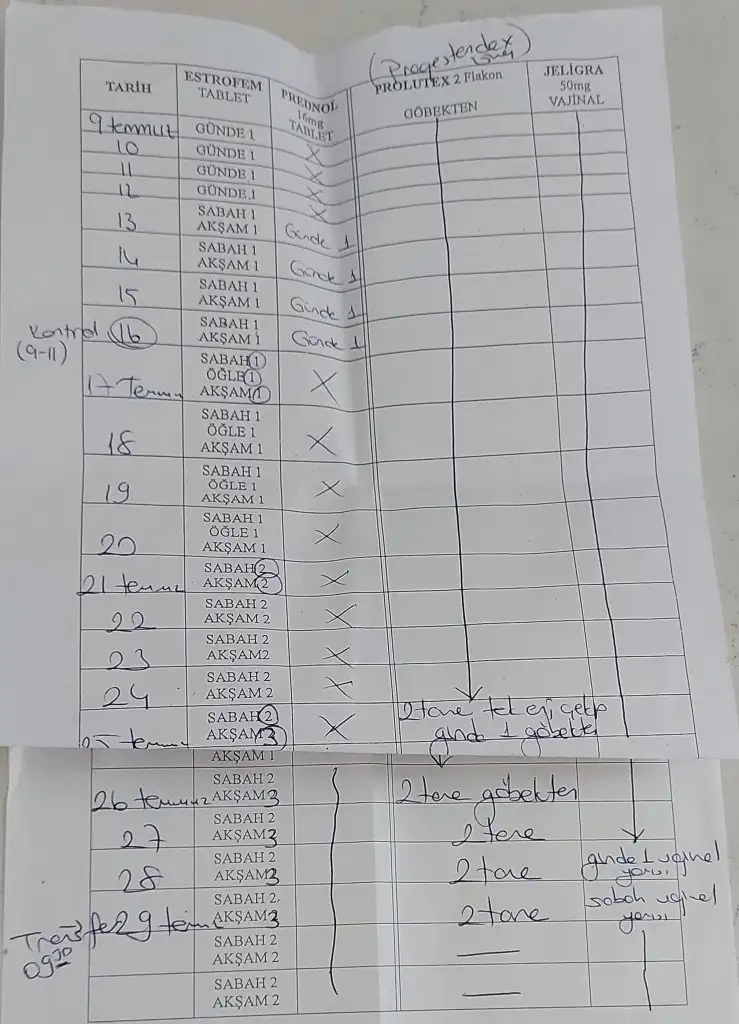 (Progestendex
TARİH
ESTROFEM
TABLET
PREDNOL
16mg
TABLET
PROLUTEX 2 Flakon
GÖBEKTEN
JELİGRA
50mg
VAJİNAL
9 temmuz GÜNDE 1
10 GÜNDE 1 X
11 GÜNDE 1 X
12 GÜNDE 1 X
X
13 SABAH 1
AKŞAM 1 Günde 1
14 SABAH 1
AKŞAM 1 Günde 1
15 SABAH 1
AKŞAM 1 Günde 1
Kontrol 16 SABAH 1
(9-11) AKŞAM 1 Günde 1
SABAH 1
ÖĞLE 1 X
17 Temmuz AKŞAM 1
SABAH 1
ÖĞLE 1 X
18 AKŞAM 1
SABAH 1
19 ÖĞLE 1 X
AKŞAM 1
SABAH 1
ÖĞLE 1 X
20 AKŞAM 1
SABAH 2
21 temmuz AKŞAM 2 X
SABAH 2
22 AKŞAM 2 X
SABAH 2
23 AKŞAM2 X
SABAH 2
24 AKŞAM 2 X
SABAH 2 X 2 tane tek
25 temmuz AKŞAM 3 günde 1 göbekten
AKŞAM 1
SABAH 2
26 temmuz AKŞAM 3 2 tane göbekten
SABAH 2
27 AKŞAM 3 2 tane
SABAH 2 günde 1 vajinal
28 AKŞAM 3 2 tane yarısı
SABAH 2 sabah vajinal
Transfer 29 temmuz AKŞAM 3 2 tane yarısı
09 30
SABAH 2
AKŞAM 2
SABAH 2
AKŞAM 2